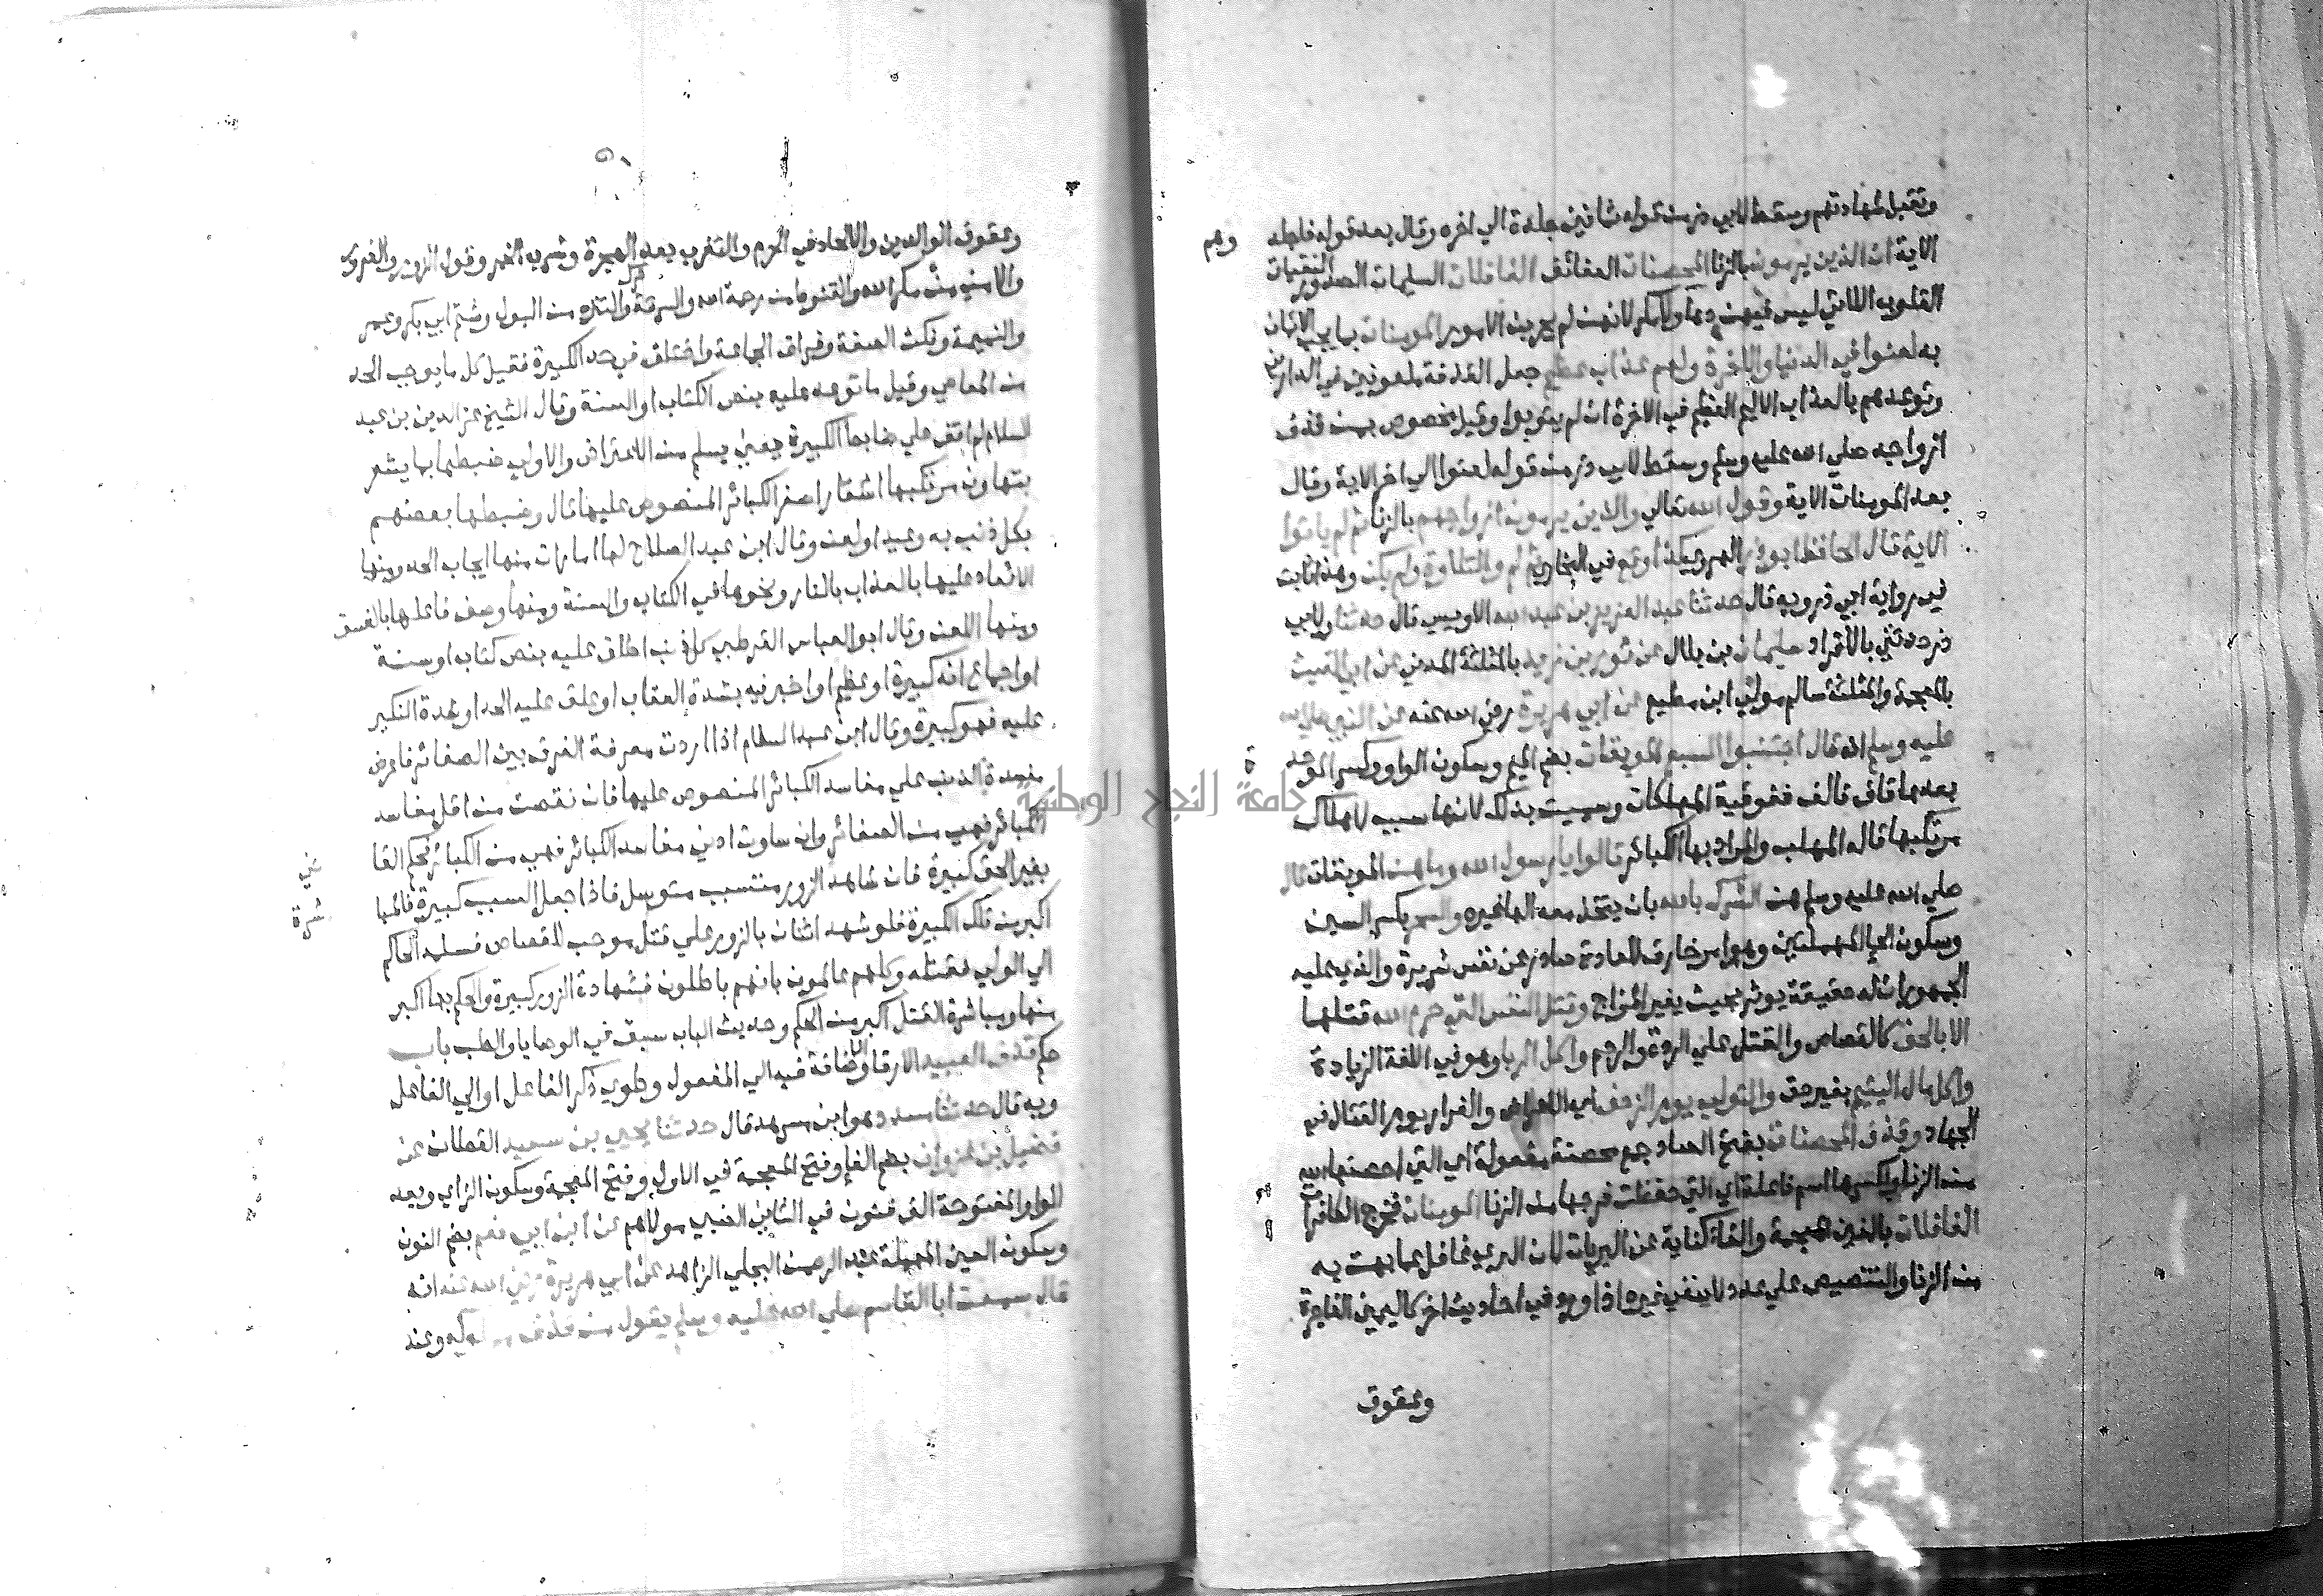 وتقبل شهادتهم وسقط لابي ذر من قوله ثمانين جلدة الي اخره وقال بعد قوله فاجلدو هم
الاية ان الذين يرمون بالزنا المحصنات العفائف الغافلات السليمات الصدور النقيات
القلوب اللاتي ليس فيهن دها ولا مكر لانهن لم يجربن الامور المومنات بما يجب الايمان
به لعنوا في الدنيا والاخرة ولهم عذاب عظيم جعل القذفة ملعونين في الدارين
وتوعدهم بالعذاب الاليم العظيم في الاخرة ان لم يتوبوا وقيل مخصوص بمن قذف
ازواجه صلي الله عليه وسلم وسقط لابي ذر من قوله لعنوا الي اخر الاية وقال
بعد المومنات الاية وقول الله تعالي والذين يرمون ازواجهم بالزنا ثم لم ياتوا
الاية قال الحافظ ابو ذر الهروي كذا وقع في البخاري ثم لم والتلاوة ولم يكن وهذا ثابت
في رواية ابي ذر وبه قال حدثنا عبد العزيز بن عبد الله الاويسي قال حدثنا ولابي
ذر حدثني بالافراد سليمان بن بلال عن ثور بن زيد بالمثلثة المدني عن ابي الغيث
بالمعجمة والمثلثة سالم مولي ابن مطيع عن ابي هريرة رضي الله عنه عن النبي صلي الله
عليه وسلم انه قال اجتنبوا السبع الموبقات بضم الميم وسكون الواو وكسر الموحد ة
بعدها قاف فالف ففوقية المهلكات وسميت بذلك لانها سبب لاهلاك
مرتكبها قاله المهلب والمراد بها الكبائر قالوا يا رسول الله وما هن الموبقات قال
صلي الله عليه وسلم هن الشرك بالله بان يتخذ معه الها غيره والسحر بكسر السين
وسكون الحا المهملتين وهو امر خارق للعادة صادر عن نفس شريرة والذي عليه
الجمهور ان له حقيقة يوثر بحيث يغير المزاج وقتل النفس التي حرم الله قتلها
الا بالحق كالقصاص والقتل علي الردة والرجم واكل الربا وهو في اللغة الزيادة
واكل مال اليتيم بغير حق والتولي يوم الزحف اي الاعراض والفرار يوم القتال في
الجهاد وقذف المحصنات بفتح الصاد جمع محصنة مفعولة اي التي احصنها الله
من الزنا وبكسرها اسم فاعلة اي التي حفظت فرجها من الزنا المومنات فخرج الكافرات
الغافلات بالغين المعجمة والفا كناية عن البريات لان البري غافل عما بهت به
من الزنا والتنصيص علي عدد لا ينفي غيره اذا ورد في احاديث اخر كاليمين الفاجرة
وعقوق
وعقوق الوالدين والالحاد في الحرم والتعرب بعد الهجرة وشرب الخمر وقول الزور والغلول
والامن من مكر الله والقنوط من رحمة الله والسرقة وترك التنزه من البول وشتم ابي بكر وعمر
والنميمة ونكث الصفقة وفراق الجماعة واختلف في حد الكبيرة فقيل كل ما يوجب الحد
من المعاصي وقيل ما توعد عليه بنص الكتاب او السنة وقال الشيخ عز الدين بن عبد
السلام لم اقف علي ضابط الكبيرة يعني يسلم من الاعتراض والاولي ضبطها بما يشعر
بتهاون مرتكبها اشعار اصغر الكبائر المنصوص عليها قال وضبطها بعضهم
بكل ذنب به وعيد او لعن وقال ابن عبد الصلاح لها امارات منها ايجاب الحد ومنها
الايعاد عليها بالعذاب بالنار ونحوها في الكتاب والسنة ومنها وصف فاعلها بالفسق
ومنها اللعن وقال ابو العباس القرطبي كل ذنب اطلق عليه بنص كتاب او سنة
او اجماع انه كبيرة او عظيم او اخبر فيه بشدة العقاب او علق عليه الحد او شدة النكير
عليه فهو كبيرة وقال ابن عبد السلام اذا اردت معرفة الفرق بين الصغائر فاعرض
مفسدة الذنب علي مفاسد الكبائر المنصوص عليها فان نقصت من اقل مفاسد
الكبائر فهي من الصغائر وان ساوت ادني مفاسد الكبائر فهي من الكبائر فحكم القا ضي
بغير الحق كبيرة فان شاهد الزور متسبب متوسل فاذا جعل السبب كبيرة فالمبا شرة
اكبر من تلك الكبيرة فلو شهد اثنان بالزور علي قتل موجب للقصاص فسلمه الحاكم
الي الولي فقتله وكلهم عالمون بانهم باطلون فشهادة الزور كبيرة والحكم بها اكبر
منها ومباشرة القتل اكبر من الحكم وحديث الباب سبق في الوصايا والطب باب
حكم قذف العبيد الارقا والاضافة فيه الي المفعول وطوي ذكر الفاعل او الي الفاعل
وبه قال حدثنا مسدد وهو ابن مسرهد قال حدثنا يحيي بن سعيد القطان عن
فضيل بن غزوان بضم الفا وفتح المعجمة في الاول وفتح المعجمة وسكون الزاي وبعد
الواو المفتوحة الف فنون في الثاني الضبي مولاهم عن ابن ابي نعم بضم النون
وسكون العين المهملة عبد الرحمن البجلي الزاهد عن ابي هريرة رضي الله عنه انه
قال سمعت ابا القاسم صلي الله عليه وسلم يقول من قذف مملوكه وعند
جامعة النجاح الوطنية